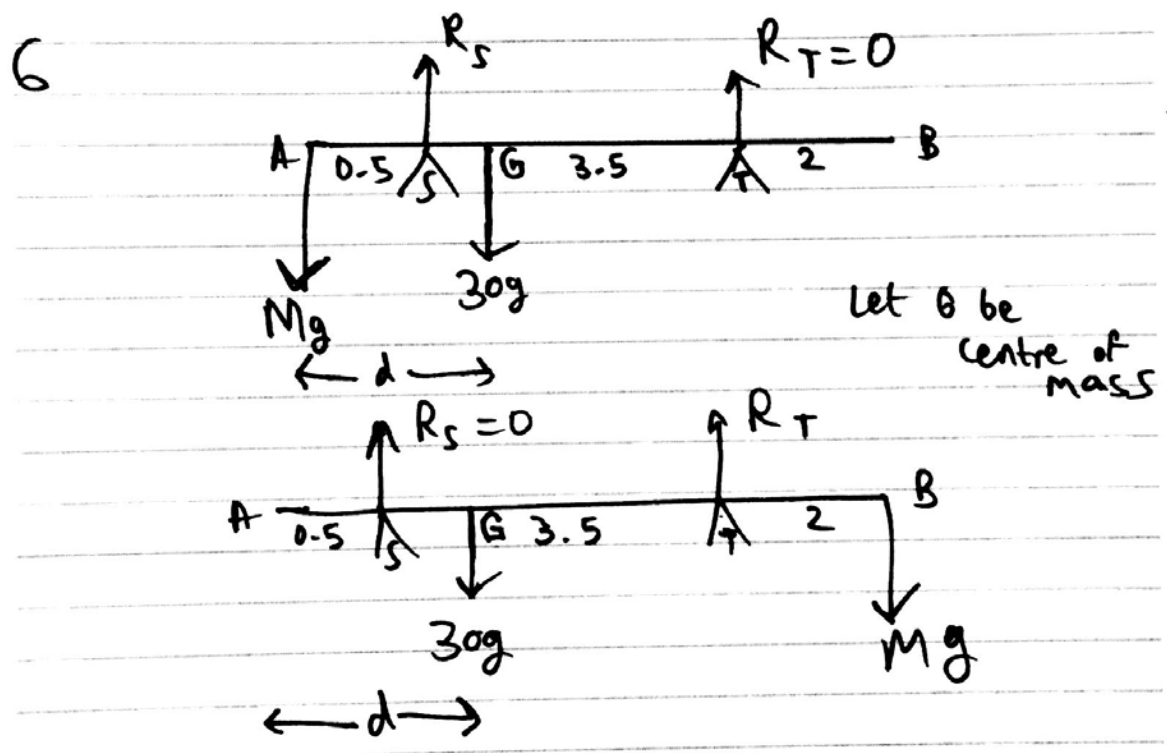 6
R_S
R_T = 0
A 0.5 S G 3.5 T 2 B
Mg
30g
Let G be
centre of
mass
d
R_S = 0
R_T
A 0.5 S G 3.5 T 2 B
30g
Mg
d